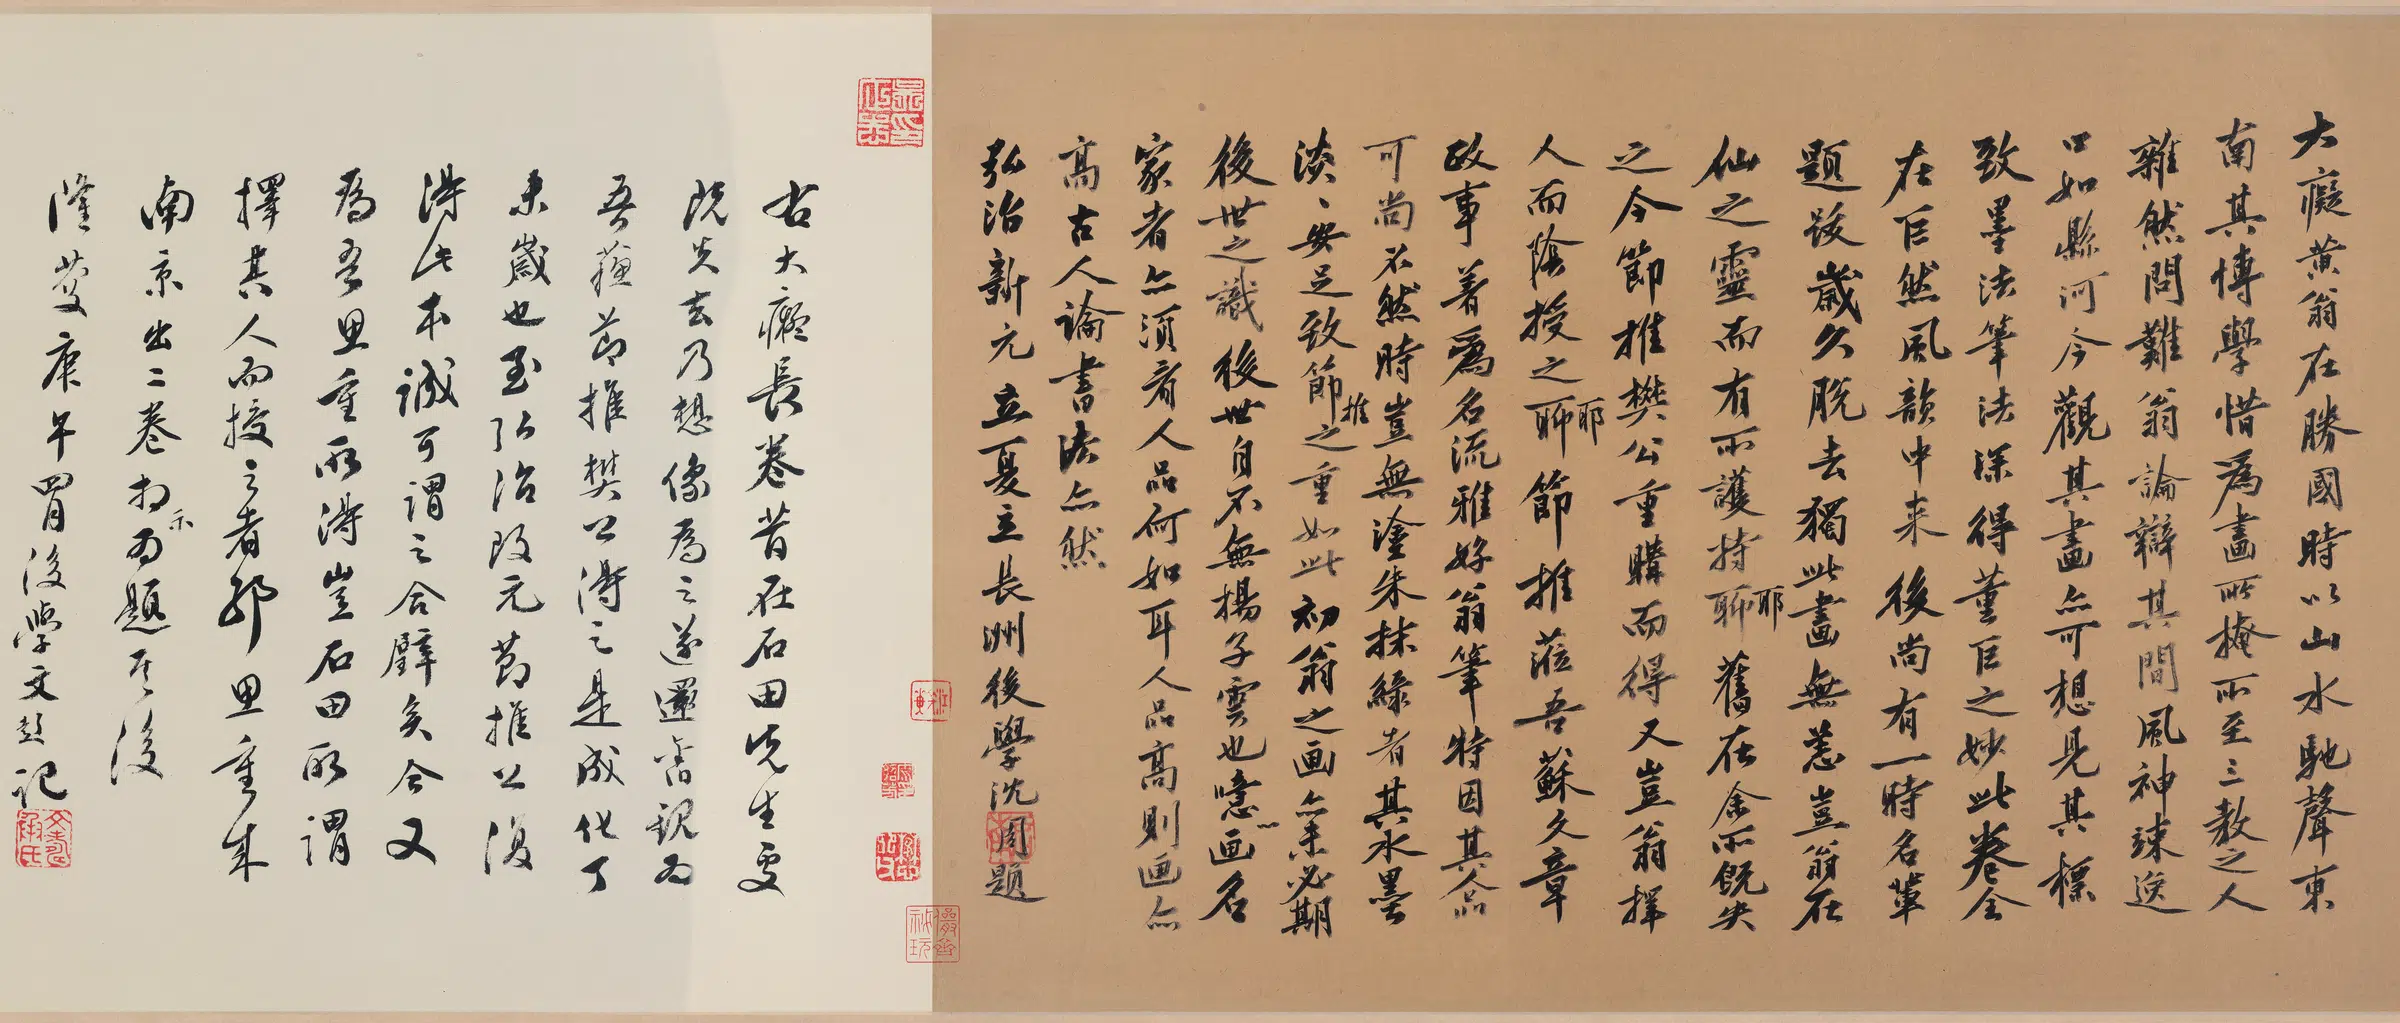 大癡黃翁在勝國時以山水馳聲東
南其博學惜為畫所掩所至三教之人
雜然問難翁論辯其間風神竦逸
口如縣河今觀其畫亦可想見其標
致墨法筆法深得董巨之妙此卷全
在巨然風韻中来後尚有一時名輩
題跋歲久脫去獨此畫無恙豈翁在
仙之靈而有所護持聊耶舊在余所既失
之今節推樊公重購而得又豈翁擇
人而陰授之聊耶節推蒞吾蘇文章
政事著為名流雅好翁筆特因其人品
可尚不然時豈無塗朱抹綠者其水墨
淡、安足致節推之重如此初翁之画亦未必期
後世之識後世自不無揚子雲也噫画名
家者亦須看人品何如耳人品高則画亦
高古人論書法亦然
弘治新元立夏立長洲後學沈周題
右大癡長卷昔在石田先生處
既失去乃想像為之遂還舊觀為
吾蘇節推樊公得之是成化丁
未歲也至弘治改元節推公復
得此本誠可謂之合璧矣今又
為吾思重所得豈石田所謂
擇其人而授之者耶思重來
南京出二卷相示為題其後
隆慶庚午四月後學文彭記